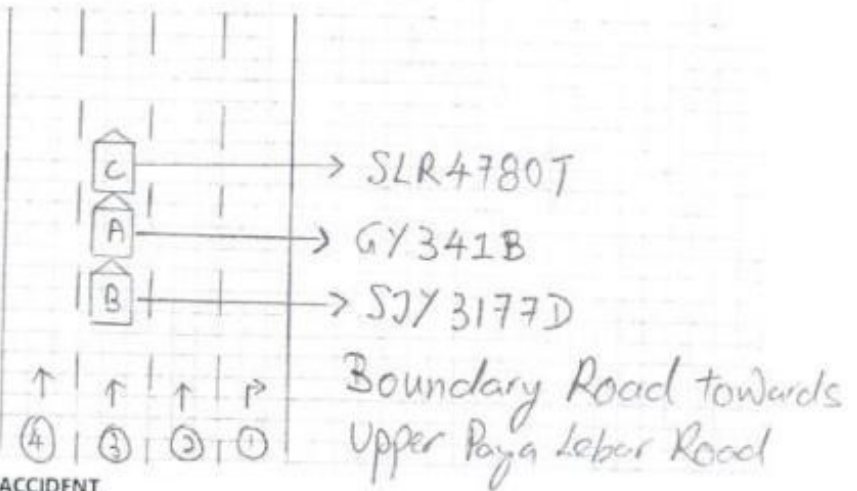 C → SLR4780T
A → GY341B
B → SJY3177D
↑ ↑ ↑ ↱ Boundary Road towards
④ ③ ② ① Upper Paya Lebar Road
ACCIDENT